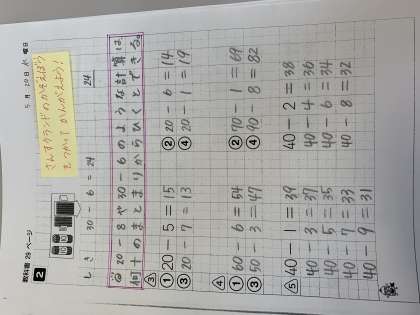 5月 20日 水曜日
教科書 29 ページ
2
さんすうランドのかぞえぼう
をつかってかんがえよう!
しき 30 - 6 = 24 24
◎ 20-8や30-6のような計算は、
何十のまとまりからひくとできる。
③
① 20 - 5 = 15 ② 20 - 6 = 14
③ 20 - 7 = 13 ④ 20 - 1 = 19
④
① 60 - 6 = 54 ② 70 - 1 = 69
③ 50 - 3 = 47 ④ 90 - 8 = 82
⑤ 40 - 1 = 39 40 - 2 = 38
40 - 3 = 37 40 - 4 = 36
40 - 5 = 35 40 - 6 = 34
40 - 7 = 33 40 - 8 = 32
40 - 9 = 31